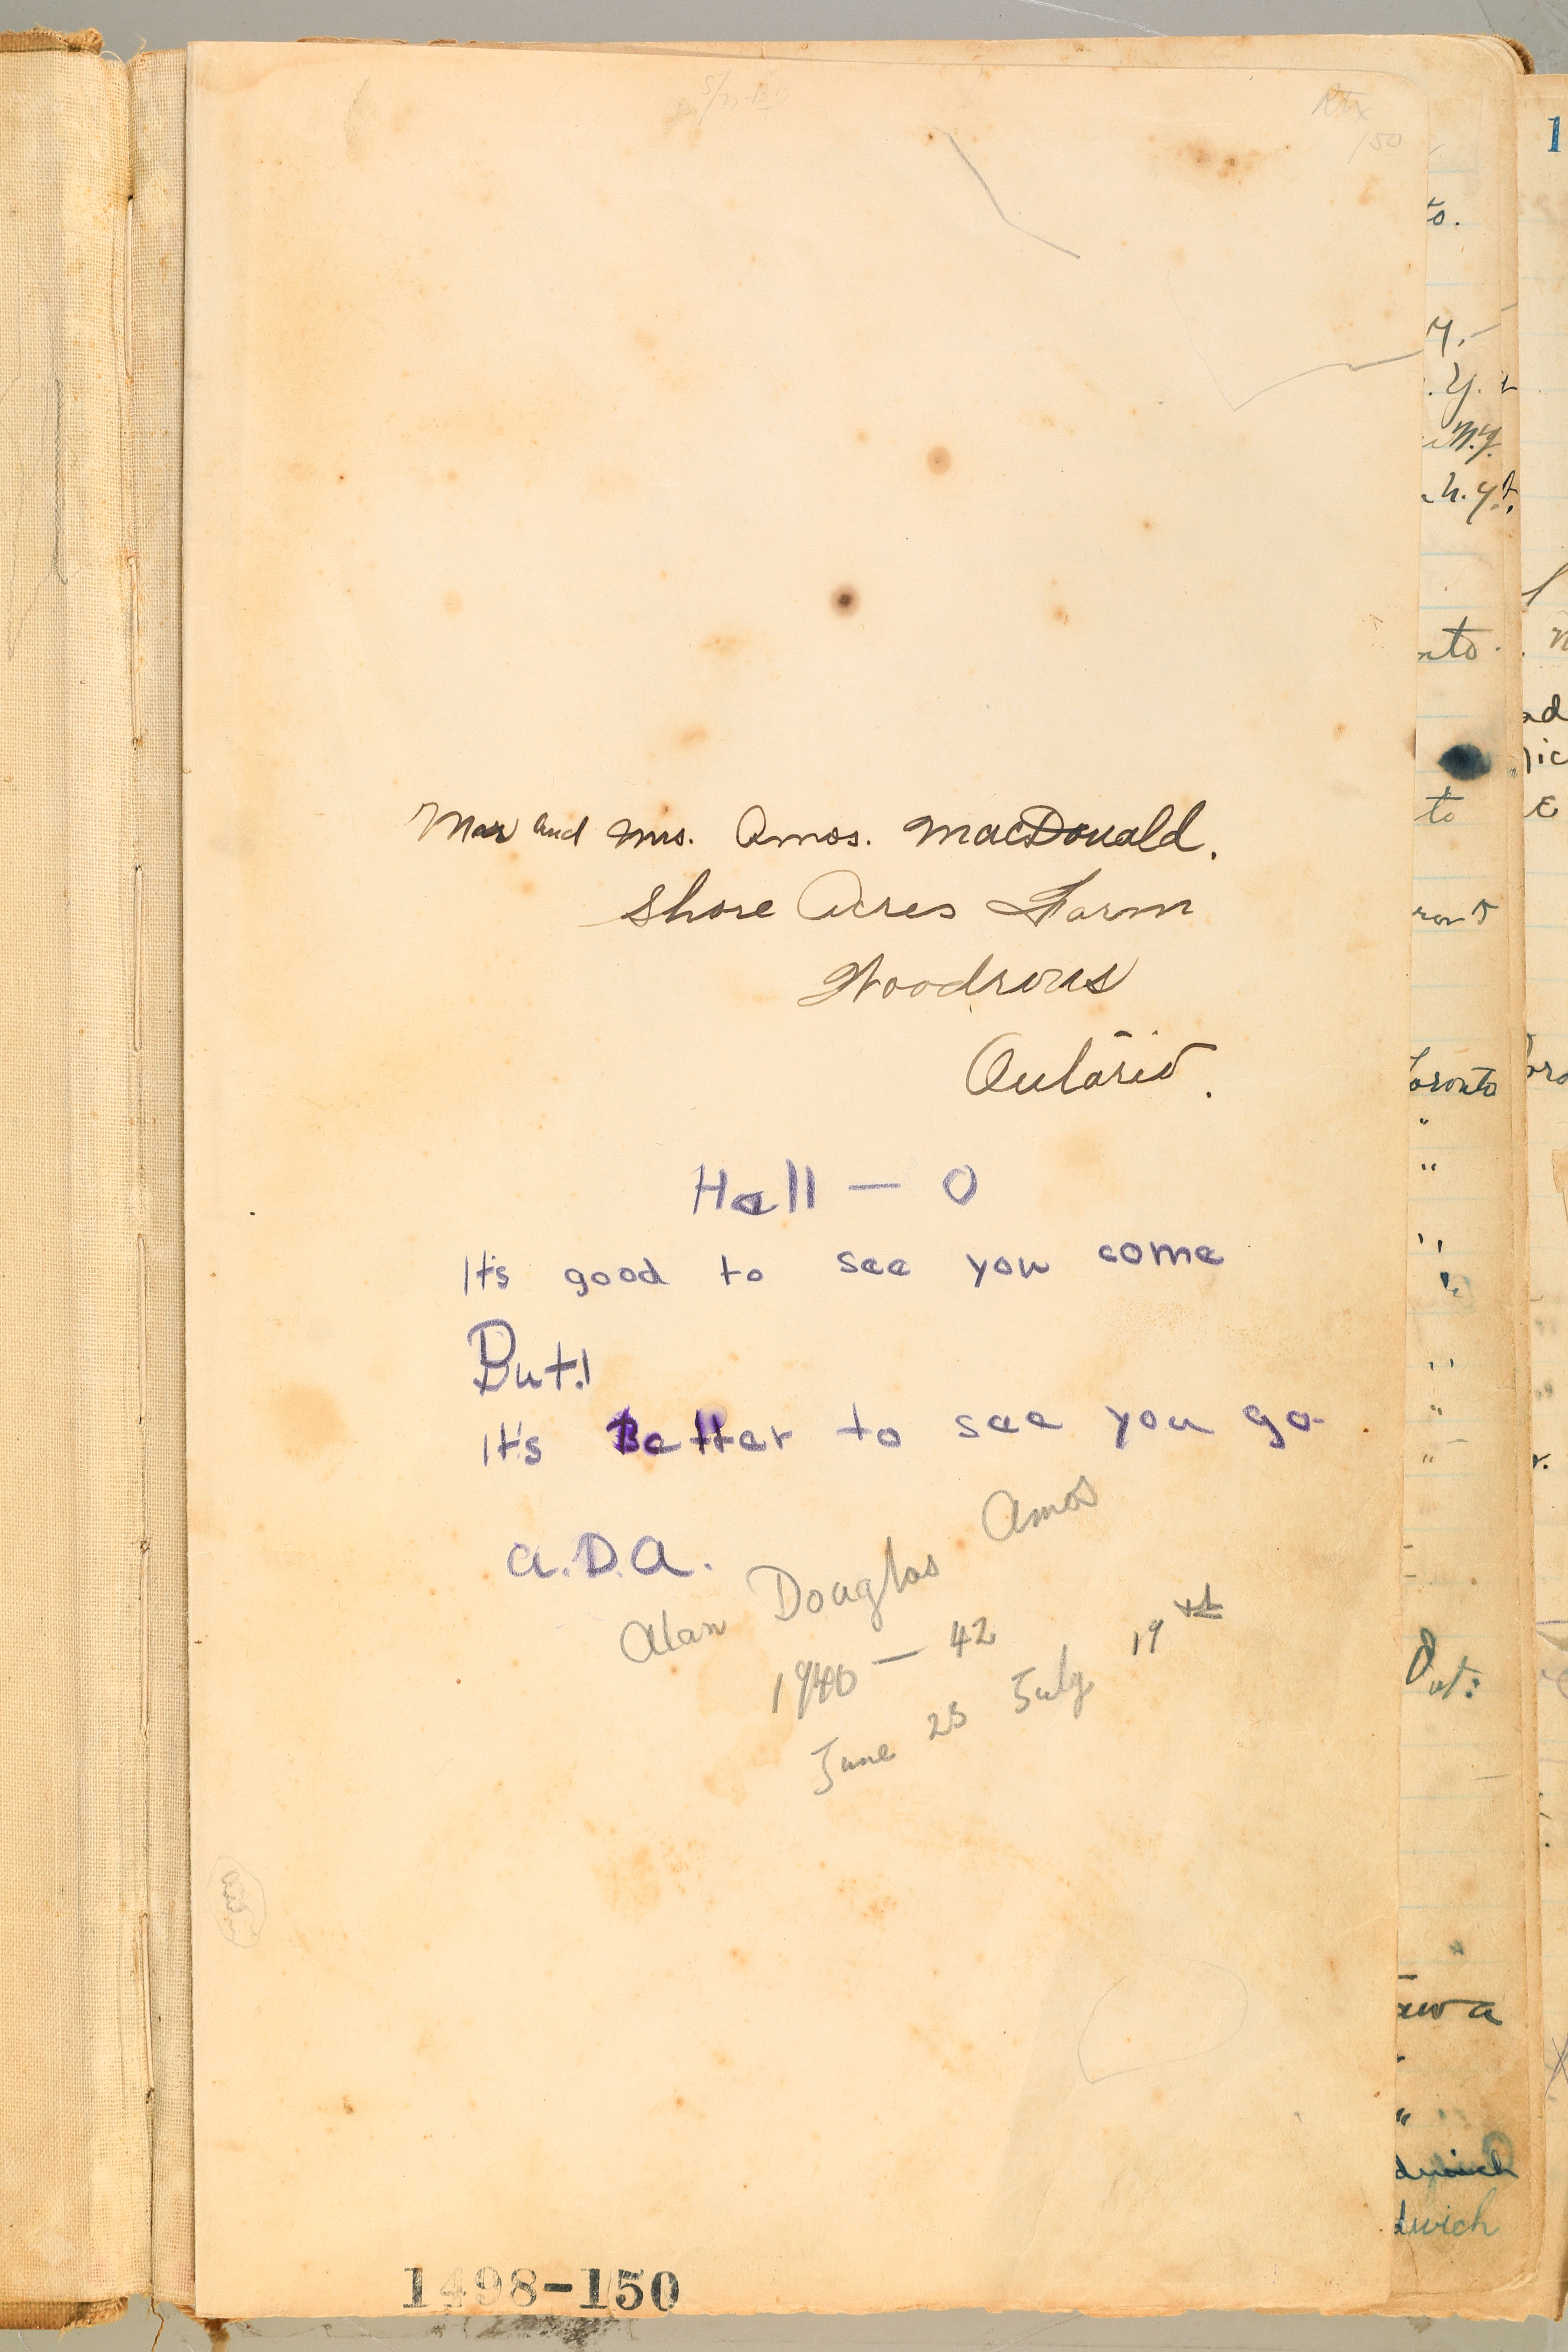 Mr and Mrs. Amos. MacDonald.
Shore Acres Farm
Woodrous
Ontario.
Hall — O
It's good to see you come
But!
It's Better to see you go.
a.D.a.
Alan Douglas Amos
1940 — 42
June 25 July 19th
1498-150
to.
y.-
.Y.
N.Y.
N.Y.
nto.
to
ront
Toronto
"
"
"
"
"
"
"
Out:
awa
"
dwich
dwich
1
ad